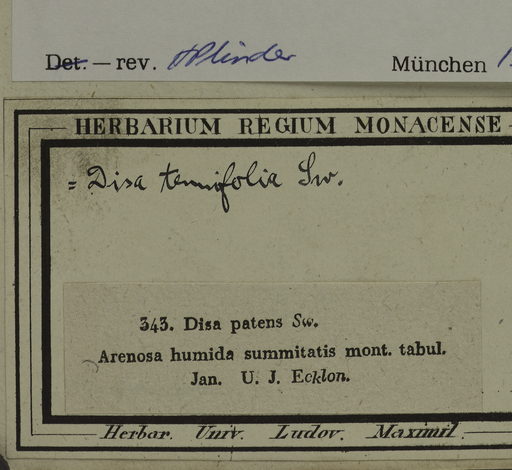 Det. — rev. HPLinder München
HERBARIUM REGIUM MONACENSE
= Disa tenuifolia Sw.
343. Disa patens Sw.
Arenosa humida summitatis mont. tabul.
Jan. U. J. Ecklon.
Herbar. Univ. Ludov. Maximil.